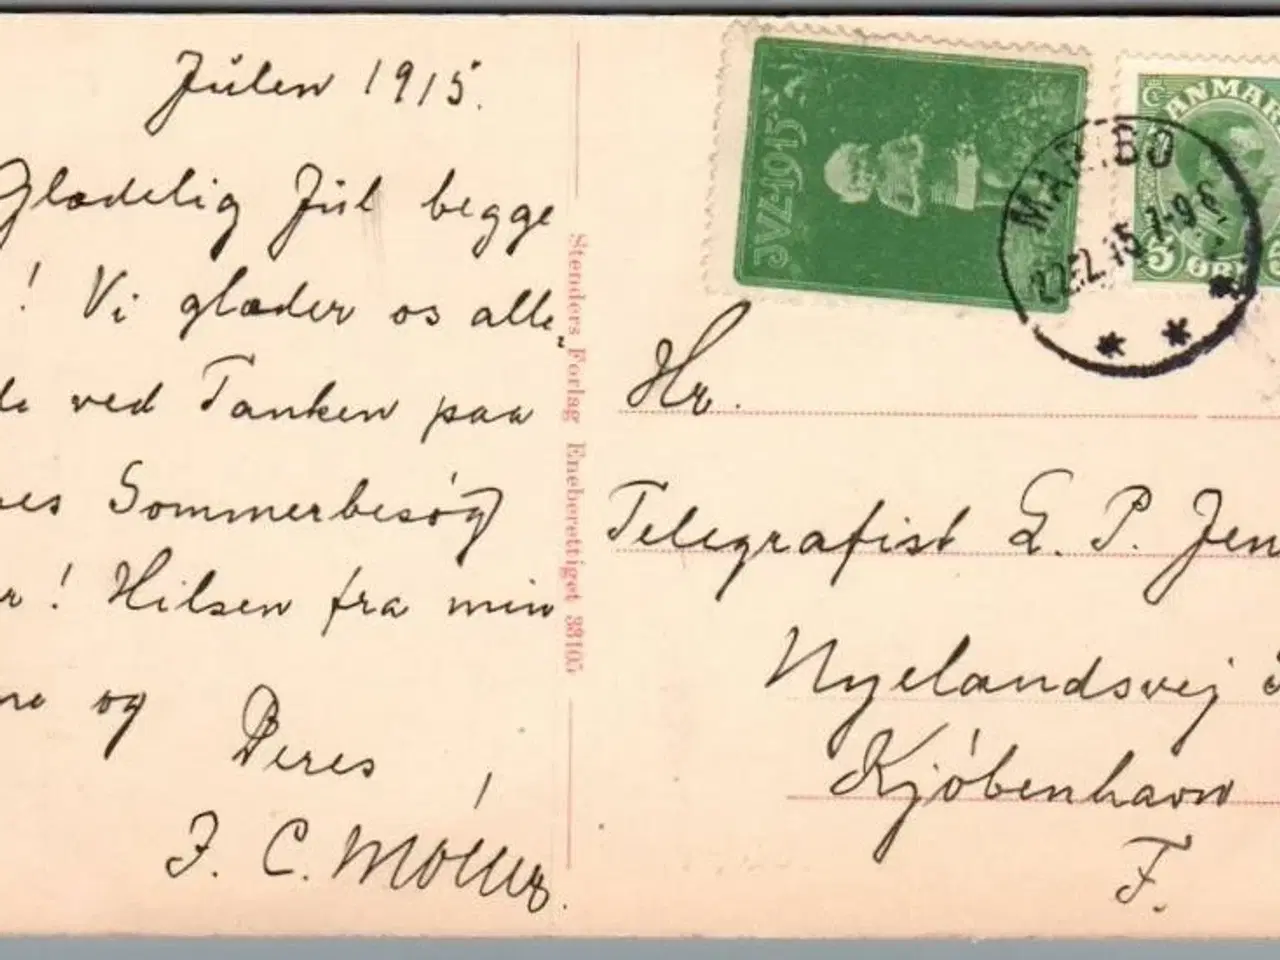 Julen 1915.
Glædelig Jul begge
! Vi glæder os alle-
de ved Tanken paa
es Sommerbesøg
r! Hilsen fra min
ne og
Deres
J. C. Møller.
Stenders Forlag Eneberettiget 38105
JVL·1915
DANMARK
5 ØRE
MARIBO
22.12.15 7-9 E.
Hr.
Telegrafist L. P. Jen
Nyelandsvej
Kjøbenhavn
F.